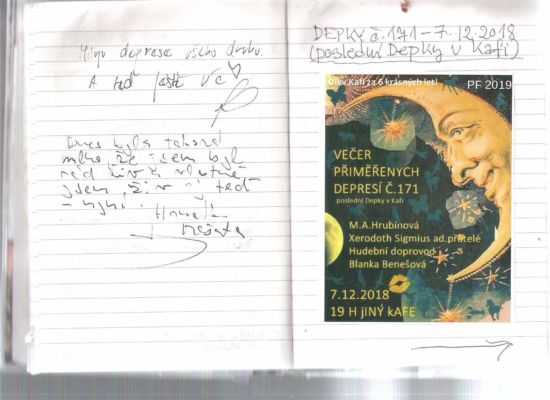 Miluju depresе všeho druhu.
A teď ještě víc
Dnes byla taková
mlha, že jsem byl
rád
jsem, teď
DEPKY č. 171 – 7.12.2018
(poslední Depky v Kafi)
Díky Kafi za 6 krásných let!
PF 2019
VEČER
PŘIMĚŘENYCH
DEPRESÍ Č.171
poslední Depky v Kafi
M.A.Hrubínová
Xerodoth Sigmius ad.přátelé
Hudební doprovod
Blanka Benešová
7.12.2018
19 H jINÝ kAFE